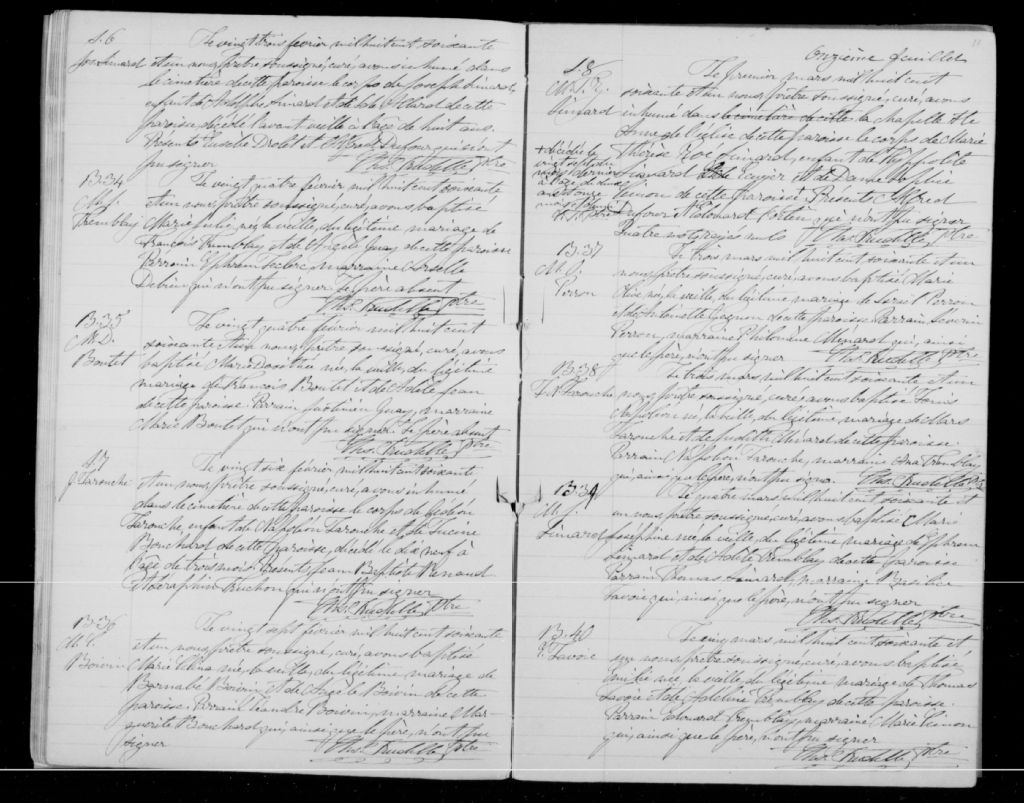 S. 6
Jos. Simard
Le vingt trois février mil huit cent soixante
et un nous, prêtre soussigné, curé, avons inhumé dans
le cimetière de cette paroisse le corps de Joseph Simard
enfant de Adolphe Simard et de de cette
paroisse décédé l'avant veille à l'age de huit ans.
Présents Eusèbe Drolet et Alfred Dufour qui n'ont
pu signer
Ths. Ptre
B. 34
M. J.
Tremblay
Le vingt quatre février mil huit cent soixante
et un nous, prêtre soussigné, curé, avons baptisé
Marie Julie, née la veille, du légitime mariage de
François Tremblay et de Angèle Guay de cette paroisse
Parrain Ephrem Leclerc, marraine
qui n'ont pu signer. Le père absent
Ths. Ptre
B. 35
M. D.
Boutet
Le vingt quatre février mil huit cent
soixante et un nous, prêtre soussigné, curé, avons
baptisé Marie Dorothée née, la veille, du légitime
mariage de François Boutet et de Adèle Jean
de cette paroisse. Parrain Guay, marraine
Marie Boutet qui n'ont pu signer. Le père absent
Ths. Ptre
S. 7
G. Larouche
Le vingt six février mil huit cent soixante
et un nous, prêtre soussigné, curé, avons inhumé
dans le cimetière de cette paroisse le corps de Gédéon
Larouche, enfant de Napoléon Larouche et de Lucine
Bouchard de cette paroisse, décédé le dix neuf à
l'age de trois mois. Présents Jean Baptiste Renaud
et Séraphin Truchon qui n'ont pu signer
Ths. Ptre
B. 36
M. C.
Boivin
Le vingt sept février mil huit cent soixante
et un nous, prêtre soussigné, curé, avons baptisé
Marie née, la veille, du légitime mariage de
Barnabé Boivin et de Boivin de cette
paroisse. Parrain Léandre Boivin, marraine Mar-
guerite Bouchard qui, ainsi que le père, n'ont pu
signer
Ths. Ptre
11
Onzième feuillet
S. 8
M. T. Z.
Simard
Le premier mars mil huit cent
soixante et un nous, prêtre soussigné, curé, avons
inhumé dans le cimetière de cette la chapelle Ste
Anne de l'église de cette paroisse le corps de Marie
Thérèse Zoé Simard, enfant de Hyppolite
Simard écuyer et de Dame
Simon de cette paroisse + Présents Alfred
Dufour et Potvin qui n'ont pu signer
Quatre mots rayés nuls Ths. Ptre
+ décédée le
vingt sept février
dernier
à l'age de
ans onze
mois
B. 37
M. O.
Perron
Le trois mars mil huit cent soixante et un
nous, prêtre soussigné, curé, avons baptisé Marie
Olive née, la veille, du légitime mariage de Perron
et de Antoinette Gagnon de cette paroisse. Parrain Séverin
Perron, marraine Philomène Ménard qui, ainsi
que le père, n'ont pu signer
Ths. Ptre
B. 38
F. N. Larouche
Le trois mars mil huit cent soixante et un
nous, prêtre soussigné, curé, avons baptisé
Napoléon né, la veille, du légitime mariage de Mars
Larouche et de Judith Ménard de cette paroisse.
Parrain Napoléon Larouche, marraine Tremblay
qui, ainsi que le père, n'ont pu signer. Ths. Ptre
B. 39
M. J.
Simard
Le quatre mars mil huit cent soixante et
un nous, prêtre soussigné, curé, avons baptisé Marie
Joséphine née, la veille, du légitime mariage de Ephrem
Simard et de Adèle Tremblay de cette paroisse
Parrain Thomas Simard, marraine Basilisse
Savoie qui, ainsi que le père, n'ont pu signer
Ths. Ptre
B. 40
Savoie
Le cinq mars mil huit cent soixante et
un nous, prêtre soussigné, curé, avons baptisé
né, la veille du légitime mariage de Thomas
Savoie et de Adeline Tremblay de cette paroisse.
Parrain Edouard Tremblay, marraine Marie Simon
qui, ainsi que le père, n'ont pu signer
Ths. Ptre